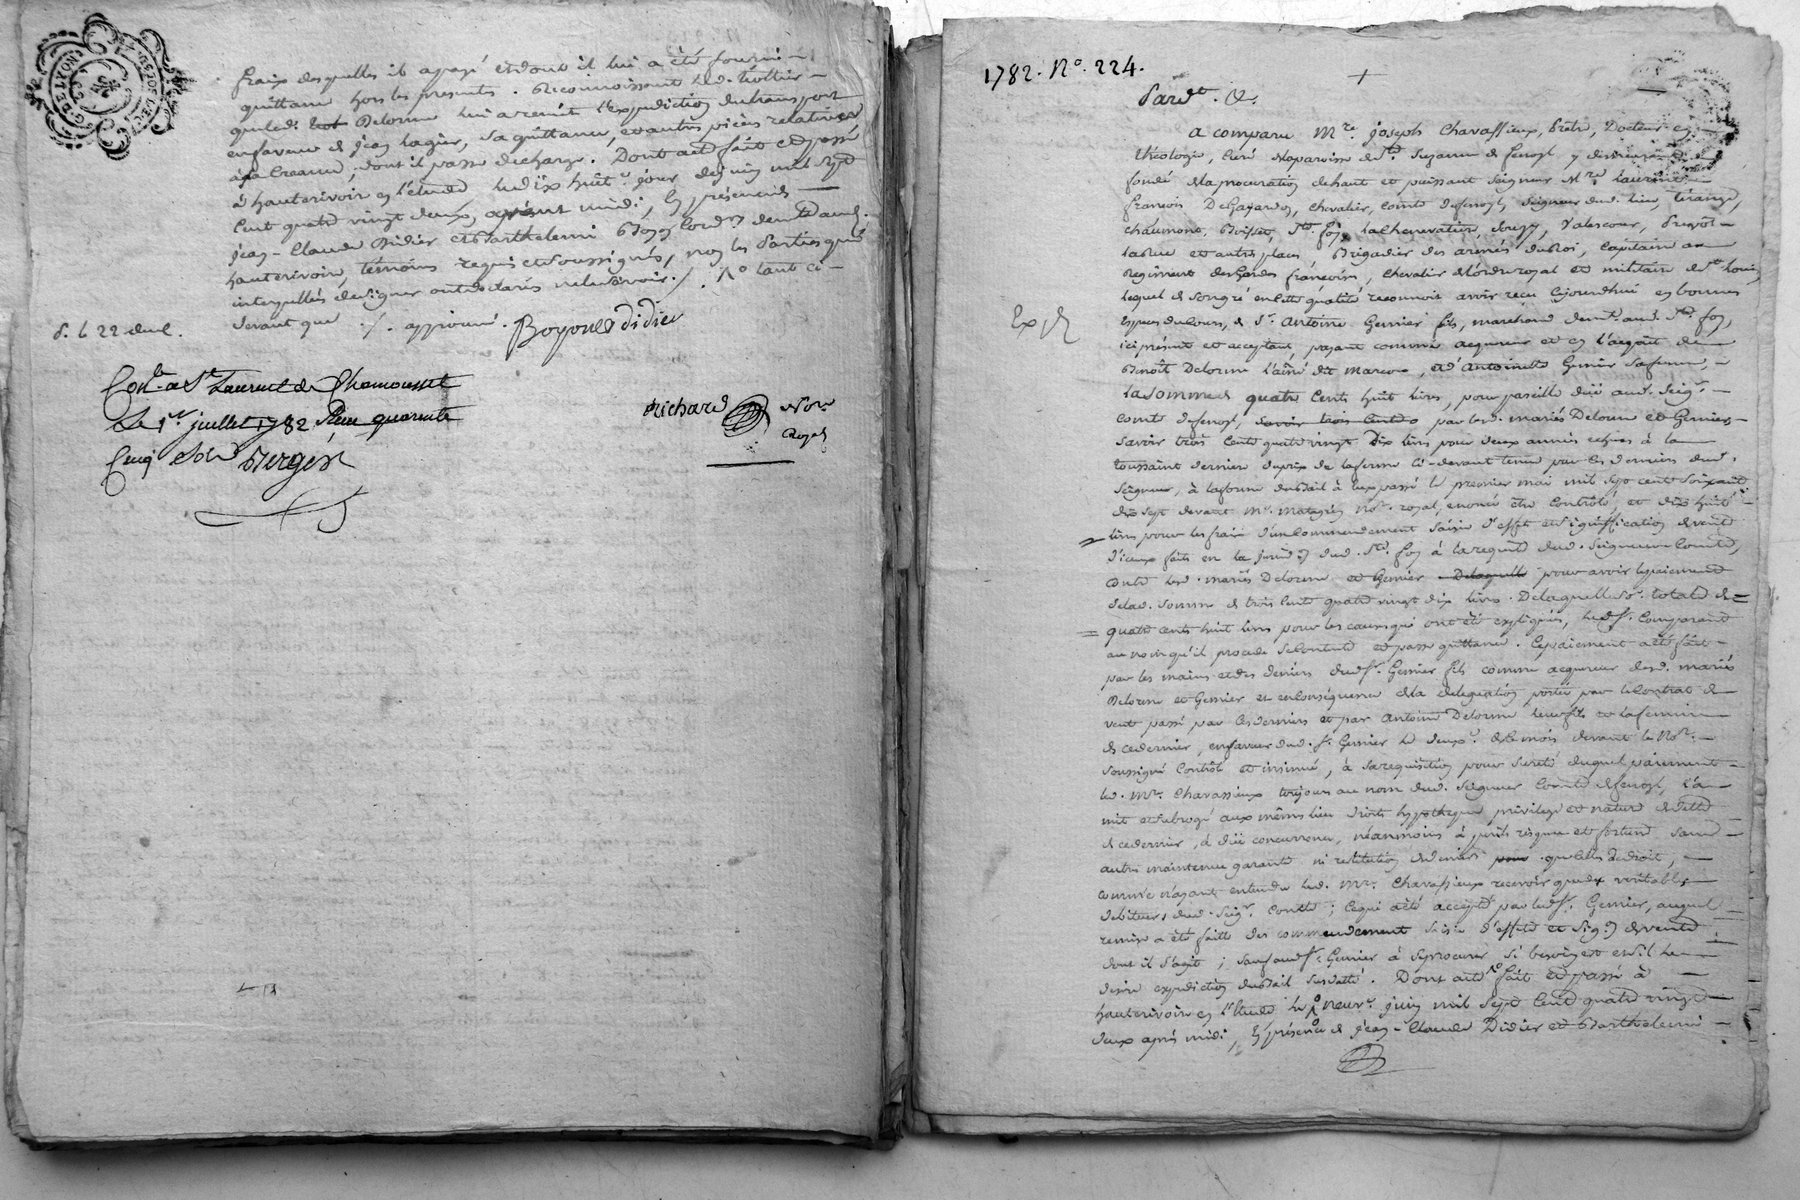 fraix desquelles il a payé et dont il lui a été fourni
quittance hors les présentes. Reconnoissant led. 
que led. Delorme lui a remit l'expédition du transport
en faveur de jean lagier, sa quittance, et autres pièces relatives
a sa Creance, dont il passe decharge. Dont acte fait et passé
à hauterivoir en l'étude le dix huit. jour de juin mil sept
Cent quatre vingt deux, avant midi, En présence de
jean-Claude Didier et Barthelemi Boyon Cord.rs demt aud.
hauterivoir, témoins requis et soussignés, non les Parties qui
interpellés de signer ont déclarés ne le savoir ./. 
devant que ./. approuvé.
Boyon Didier
d. l 22 dud.
Con.lé a St Laurent de Chamousset
Le 1er juillet 1782 Reçu quarente
Cinq sols Bergés
Richard Nore
Royal
GEN. DE LYON
1782. No. 224.
Pard.t &.
A comparu Mre. joseph Chavassieux, Prêtre, Docteur en
théologie, Curé de la paroisse de Ste. Suzanne de fenoyl y demeurant
fondé de la procuration de haut et puissant Seigneur Mre. laurent
françois De Gayardon, Chevalier, Comte de fenoyl, Seigneur dud. lieu, tiranges,
chaumont, Boisset, Ste. foy, la Chenevatiere, Souzy, Valescour, 
la Rue et autres places, Brigadier des armées du Roi, Capitaine au
Régiment des Gardes françoises, Chevalier de l'ordre royal et militaire de St. louis,
lequel de son gré en cette qualité reconnoit avoir reçu cejourd'hui en bonnes
Especes du Cours, de Sr. Antoine Gernier fils, marchand demt. aud. Ste. foy,
ici présent et acceptant, payant comme acquereur et en l'acquit de
Benoît Delorme l'aîné dit Marcou, et d'Antoinette Gernier sa femme,
la somme de quatre Cents huit livres, pour pareille düe aud. Seigr.
Comte de fenoyl, savoir trois Cents par lesd. mariés Delorme et Gernier
Savoir trois Cents quatre vingt Dix livres pour deux années echues à la
toussaint dernier du prix de la ferme ci-devant tenue par les derniers dud.
Seigneur, à la forme du Bail à eux passé le premier mai mil sept cent soixante
dix sept devant Me. Matagrin Nore. royal, enoncé être Contrôlé, et dix huit
livres pour les frais d'un Commendement Saisie d'effet et signiffication de vente
d'iceux faits en la jurid.on dud. Ste. foy à la requête dud. Seigneur Comte,
contre lesd. mariés Delorme et Gernier De laquelle pour avoir le paiement
de lad. Somme de trois Cents quatre vingt dix livres. De laquelle so.e totale de
quatre cents huit livres pour les causes qui ont été expliquées, led. Sr. Comparant
au nom qu'il procede se Contente et passe quittance. Ce paiement a été fait
par les mains et des deniers dud. Sr. Gernier fils comme acquereur desd. mariés
Delorme et Gernier et en Conséquence de la delegation portée par le Contrat de
vente passé par ces derniers et par Antoine Delorme leur fils et la femme
de ce dernier, en faveur dud. Sr. Gernier le deux. de ce mois devant le Nore.
soussigné Contrôlé et insinué, à sa requisition pour sureté duquel paiement
led. Mre. Chavassieux toujours au nom dud. Seigneur Comte de fenoyl, l'a
mit et subrogé aux mêmes lieu Droits hypothèque privilege et nature de dette
de ce dernier, à düe concurrence, néanmoins à perils risques et fortune sans
autre maintenue garantie ni restitution de deniers pour que celles de droit,
comme n'ayant entendu led. Mre. Chavassieux recevoir que des veritables
debiteurs dud. Seigr. Comte; Ce qui a été accepté par led. Sr. Gernier, auquel
remise a été faitte des commendement Saisie d'effets et sig.on de vente
dont il s'agit; sauf aud. Sr. Gernier à se procurer si besoin est et s'il le
desire expedition du Bail susdatté. Dont acte fait et passé à
hauterivoir en l'étude le neuv. juin mil sept Cent quatre vingt
deux après midi, En présence de jean-Claude Didier et Barthelemi
Expé